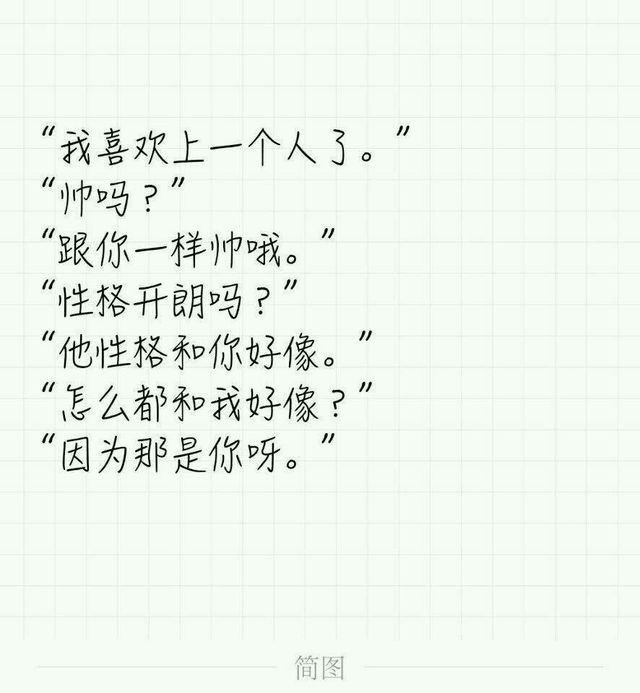 “我喜欢上一个人了。”
“帅吗？”
“跟你一样帅哦。”
“性格开朗吗？”
“他性格和你好像。”
“怎么都和我好像？”
“因为那是你呀。”
简图